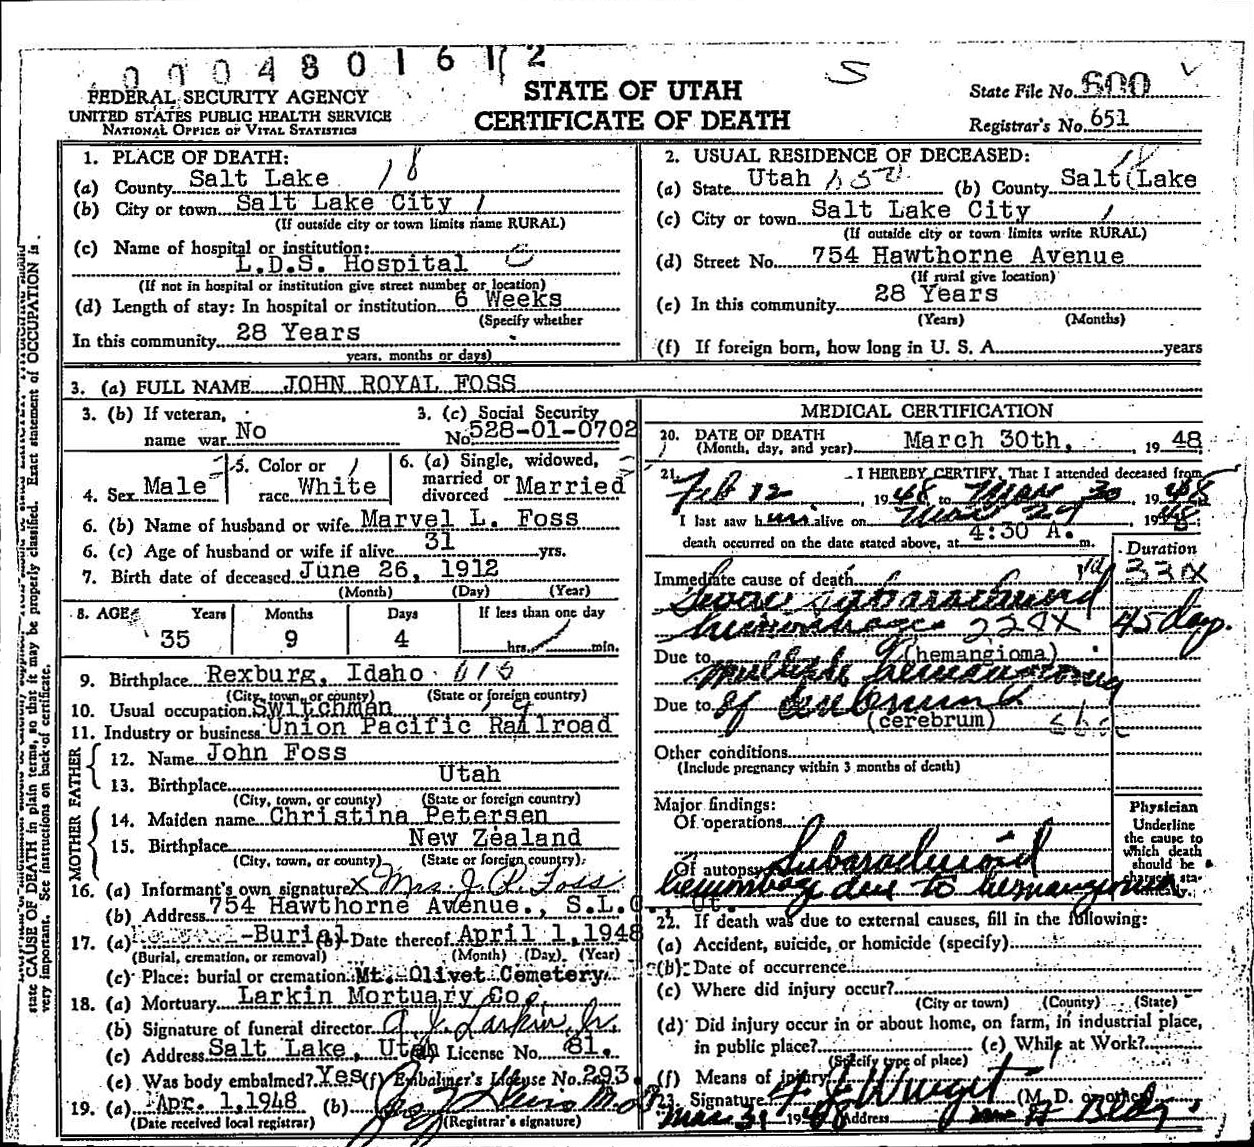 000480161 2
S
FEDERAL SECURITY AGENCY
UNITED STATES PUBLIC HEALTH SERVICE
NATIONAL OFFICE OF VITAL STATISTICS
STATE OF UTAH
CERTIFICATE OF DEATH
State File No. 600
Registrar's No. 651
1. PLACE OF DEATH: 18
(a) County Salt Lake
(b) City or town Salt Lake City 1
(If outside city or town limits name RURAL)
(c) Name of hospital or institution:
L.D.S. Hospital
(If not in hospital or institution give street number or location)
(d) Length of stay: In hospital or institution 6 Weeks
(Specify whether
In this community 28 Years
years, months or days)
2. USUAL RESIDENCE OF DECEASED: 18
(a) State Utah (b) County Salt Lake
(c) City or town Salt Lake City 1
(If outside city or town limits write RURAL)
(d) Street No. 754 Hawthorne Avenue
(If rural give location)
(e) In this community 28 Years
(Years) (Months)
(f) If foreign born, how long in U. S. A. years
3. (a) FULL NAME JOHN ROYAL FOSS
3. (b) If veteran, name war No
3. (c) Social Security No. 528-01-0702
4. Sex Male
5. Color or race White
6. (a) Single, widowed, married or divorced Married
6. (b) Name of husband or wife Marvel L. Foss
6. (c) Age of husband or wife if alive 31 yrs.
7. Birth date of deceased June 26, 1912
(Month) (Day) (Year)
8. AGE Years Months Days If less than one day
35 9 4 hrs. min.
9. Birthplace Rexburg, Idaho
(City, town, or county) (State or foreign country)
10. Usual occupation Switchman
11. Industry or business Union Pacific Railroad
FATHER
12. Name John Foss
13. Birthplace Utah
(City, town, or county) (State or foreign country)
MOTHER
14. Maiden name Christina Petersen
15. Birthplace New Zealand
(City, town, or county) (State or foreign country)
16. (a) Informant's own signature x Mrs. J. R. Foss
(b) Address 754 Hawthorne Avenue., S.L.C., Ut.
17. (a) Burial (b) Date thereof April 1, 1948
(Burial, cremation, or removal) (Month) (Day) (Year)
(c) Place: burial or cremation Mt. Olivet Cemetery
18. (a) Mortuary Larkin Mortuary Co.
(b) Signature of funeral director A J. Larkin Jr.
(c) Address Salt Lake, Utah (d) License No. 81.
(e) Was body embalmed? Yes (f) Embalmer's License No. 293
19. (a) Apr. 1, 1948 (b)
(Date received local registrar) (Registrar's signature)
MEDICAL CERTIFICATION
20. DATE OF DEATH March 30th, 1948
(Month, day, and year)
21. I HEREBY CERTIFY, That I attended deceased from
Feb 12 1948 to Mar 30 1948
I last saw him alive on Mar 29, 1948
death occurred on the date stated above, at 4:30 A. m.
Duration
Immediate cause of death
Severe subarachnoid
hemorrhage 45 days
Due to (hemangioma)
multiple hemangioma
Due to of cerebrum
(cerebrum)
Other conditions
(Include pregnancy within 3 months of death)
Major findings:
Of operations
Of autopsy Subarachnoid
hemorrhage due to hemangioma
Physician
Underline
the cause to
which death
should be
charged sta-
tistically.
22. If death was due to external causes, fill in the following:
(a) Accident, suicide, or homicide (specify)
(b) Date of occurrence
(c) Where did injury occur?
(City or town) (County) (State)
(d) Did injury occur in or about home, on farm, in industrial place,
in public place? (e) While at Work?
(Specify type of place)
(f) Means of injury
23. Signature (M. D. or other)
Mar 31 1948 Address Bldg.
state CAUSE OF DEATH in plain terms, so that it may be properly classified. Exact statement of OCCUPATION is
very important. See instructions on back of certificate.